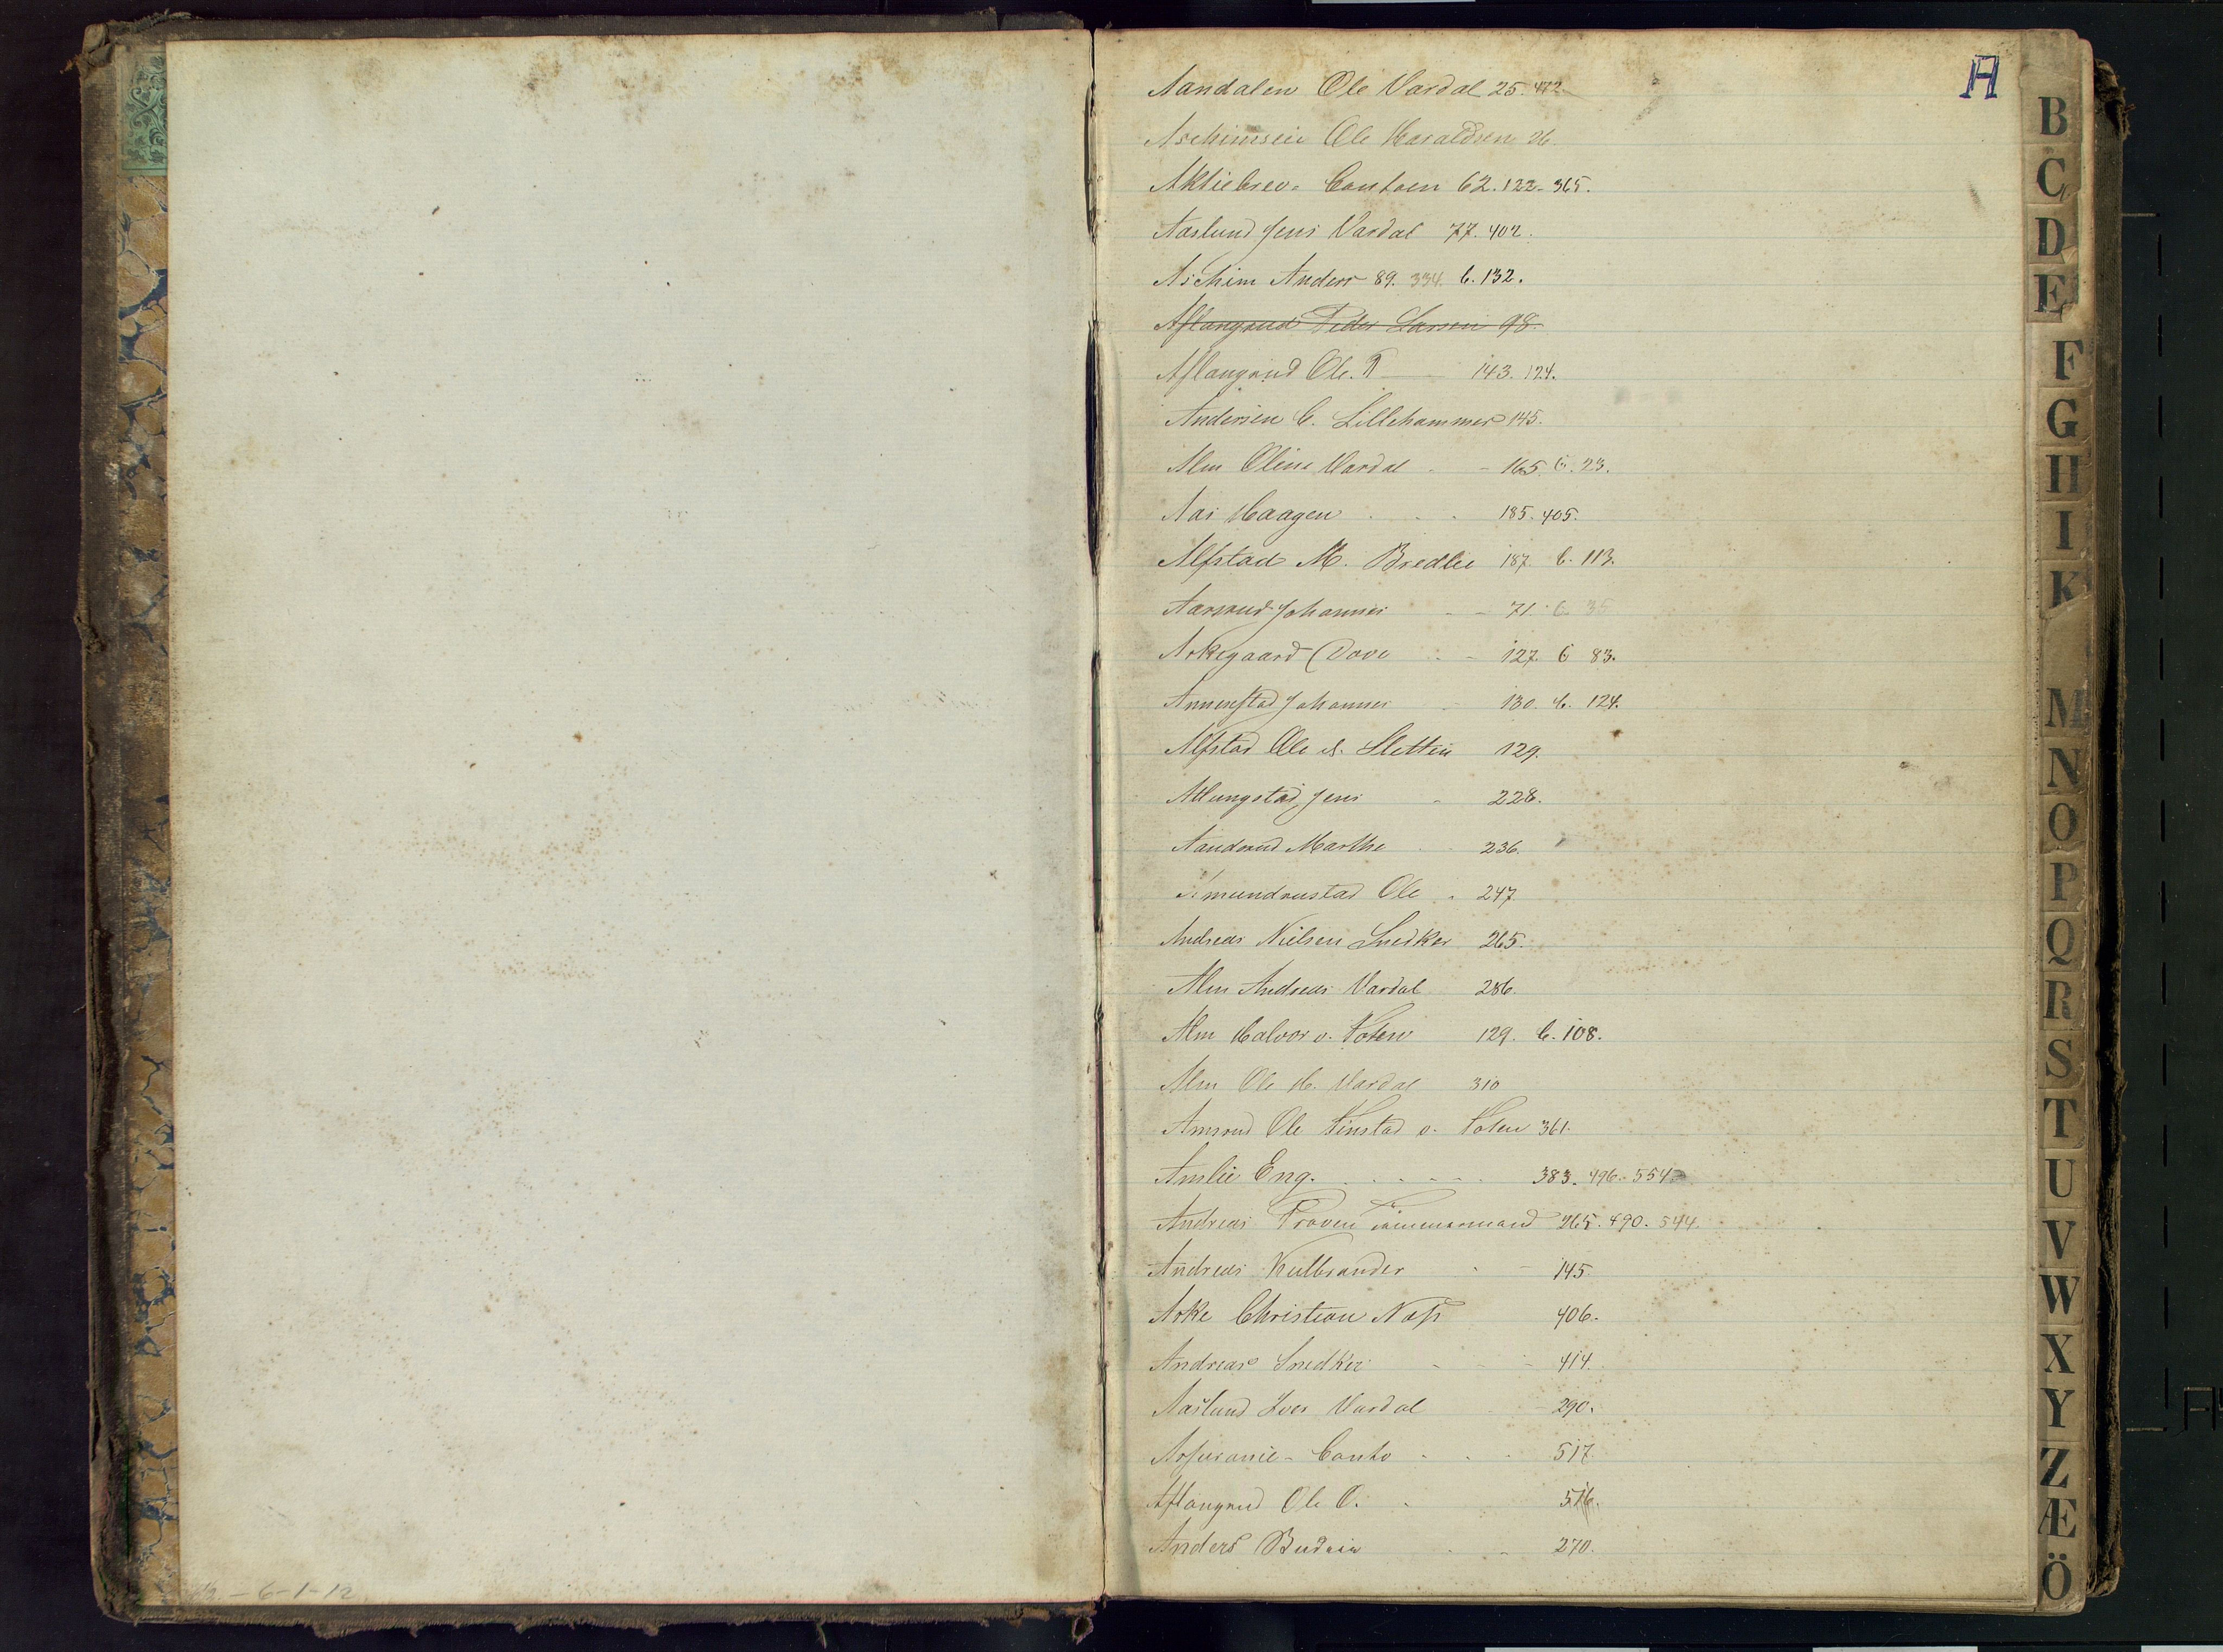 A
Aandalen Ole Vardal 25. 472
Aschimseie Ole Haraldsen 26.
Aktiebrev. Contoen 62. 122. 365.
Aaslund Jens Vardal 77. 402.
Aschim Anders 89. 334. C. 132.
Aflangrud Peder Larsen 98.
Aflangrud Ole. 143. 124.
Andersen C. Lillehammer 145.
Alm Oline Vardal - 165. C. 23.
Aas Haagen . . . 185. 405.
Alfstad M. Bredlie 187. C. 113.
Aarsrud Johannes - - 71. C 35
Askegaard Dove - - 127. C 83.
Annexstad Johannes - 130. C. 124.
Alfstad Ole Sletten 129.
Allungstad, Jens - 228.
Aandrud Marthe - 236.
Amundrustad Ole - 247
Andreas Nielsen Snedker 265.
Alm Andreas Vardal 286.
Alm Halvor v. Toten 129. C. 108.
Alm Ole H. Vardal 310
Amsrud Ole Finstad v. Toten 361.
Amlie Eng. - - - - - 383. 496. 554
Andreas Prøven Tømmermand 265. 490. 544.
Andreas Kulbrander - - 145.
Aske Christian Næss 406.
Andreas Snedker - - - 414.
Aaslund Iver Vardal - 290.
Assurance-Conto - - - 517.
Aflangrud Ole O. - 516.
Anders Budeie - - 270.
B
C
D
E
F
G
H
I
K
M
N
O
P
Q
R
S
T
U
V
W
X
Y
Z
Æ
Ö
6-1-12